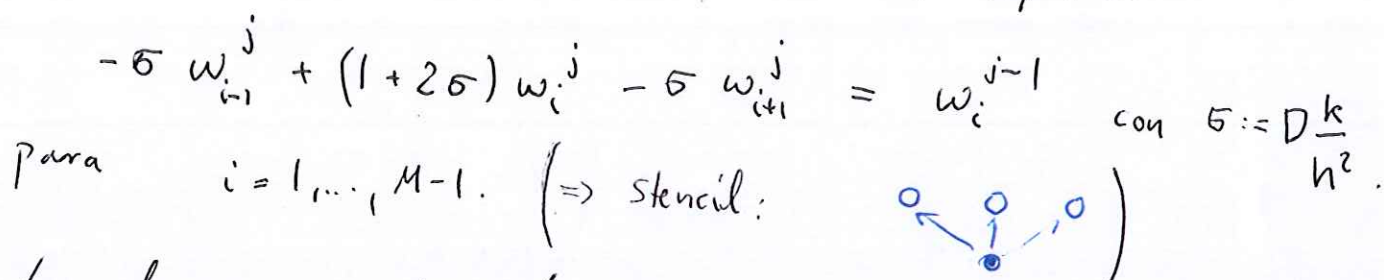 -σ w_{i-1}^{j} + (1+2σ) w_i^{j} - σ w_{i+1}^{j} = w_i^{j-1} con σ := D k/h².
para i = 1,..., M-1. (=> stencil: )